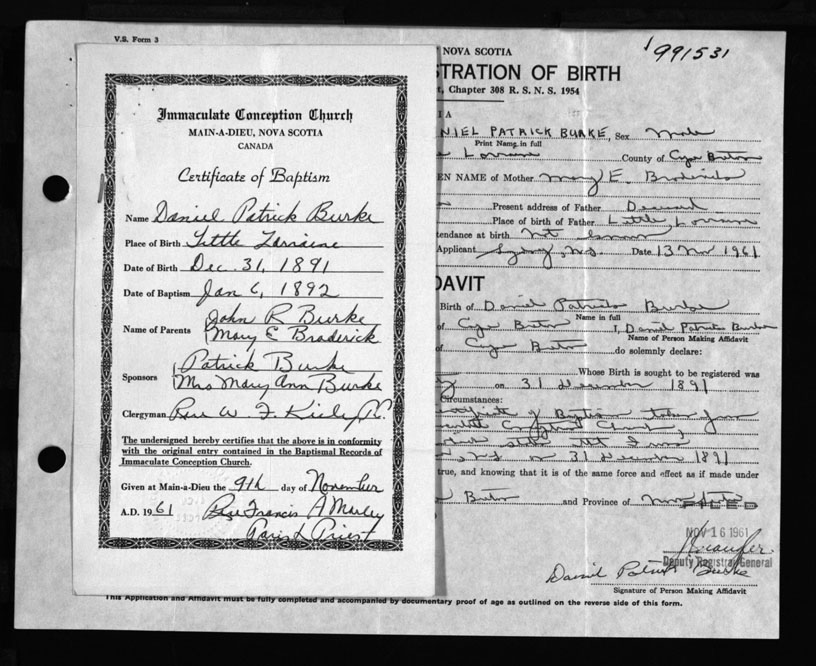 V.S. Form 3
Immaculate Conception Church
MAIN-A-DIEU, NOVA SCOTIA
CANADA
Certificate of Baptism
Name Daniel Patrick Burke
Place of Birth Little Lorraine
Date of Birth Dec. 31, 1891
Date of Baptism Jan 6, 1892
Name of Parents John R Burke
Mary E Broderick
Sponsors Patrick Burke
Mrs Mary Ann Burke
Clergyman Rev W. F. Kiely P.P.
The undersigned hereby certifies that the above is in conformity
with the original entry contained in the Baptismal Records of
Immaculate Conception Church.
Given at Main-a-Dieu the 9th day of November
A.D. 1961 Rev Francis A Morley
Parish Priest
991531
NOVA SCOTIA
STRATION OF BIRTH
, Chapter 308 R. S. N. S. 1954
NIEL PATRICK BURKE, Sex Male
Print Name in full
Lorraine County of Cape Breton
EN NAME of Mother Mary E. Broderick
Present address of Father Deceased
Place of birth of Father Little Lorraine
tendance at birth Not known
Applicant Sydney, N.S. Date 13 Nov 1961
DAVIT
Birth of Daniel Patrick Burke
Name in full
of Cape Breton I, Daniel Patrick Burke
Name of Person Making Affidavit
of Cape Breton do solemnly declare:
Whose Birth is sought to be registered was
on 31 December 1891
Circumstances:
certificate of Baptism taken from
Conception Church,
still that I was
on 31 December 1891
true, and knowing that it is of the same force and effect as if made under
Breton and Province of Nova Scotia
FILED
NOV 16 1961
Deputy Registrar General
Daniel Patrick Burke
Signature of Person Making Affidavit
This Application and Affidavit must be fully completed and accompanied by documentary proof of age as outlined on the reverse side of this form.